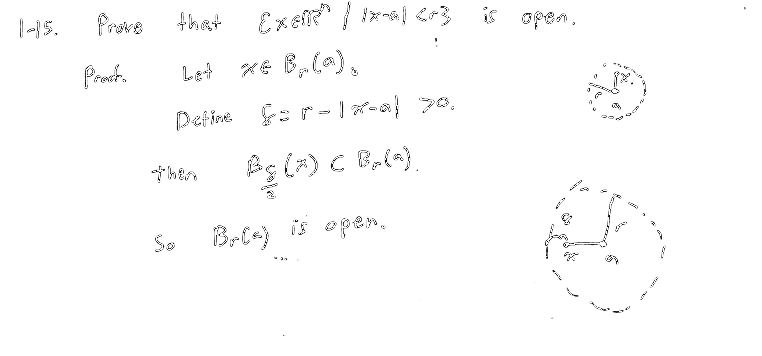 1-15. Prove that {x∈ℝⁿ / |x-a| <r} is open.
Proof. Let x∈ B_r(a).
Define δ = r - |x-a| >0.
then B_{δ/2}(x) ⊂ B_r(a).
So B_r(a) is open.
x
r
a
δ
r
x
a